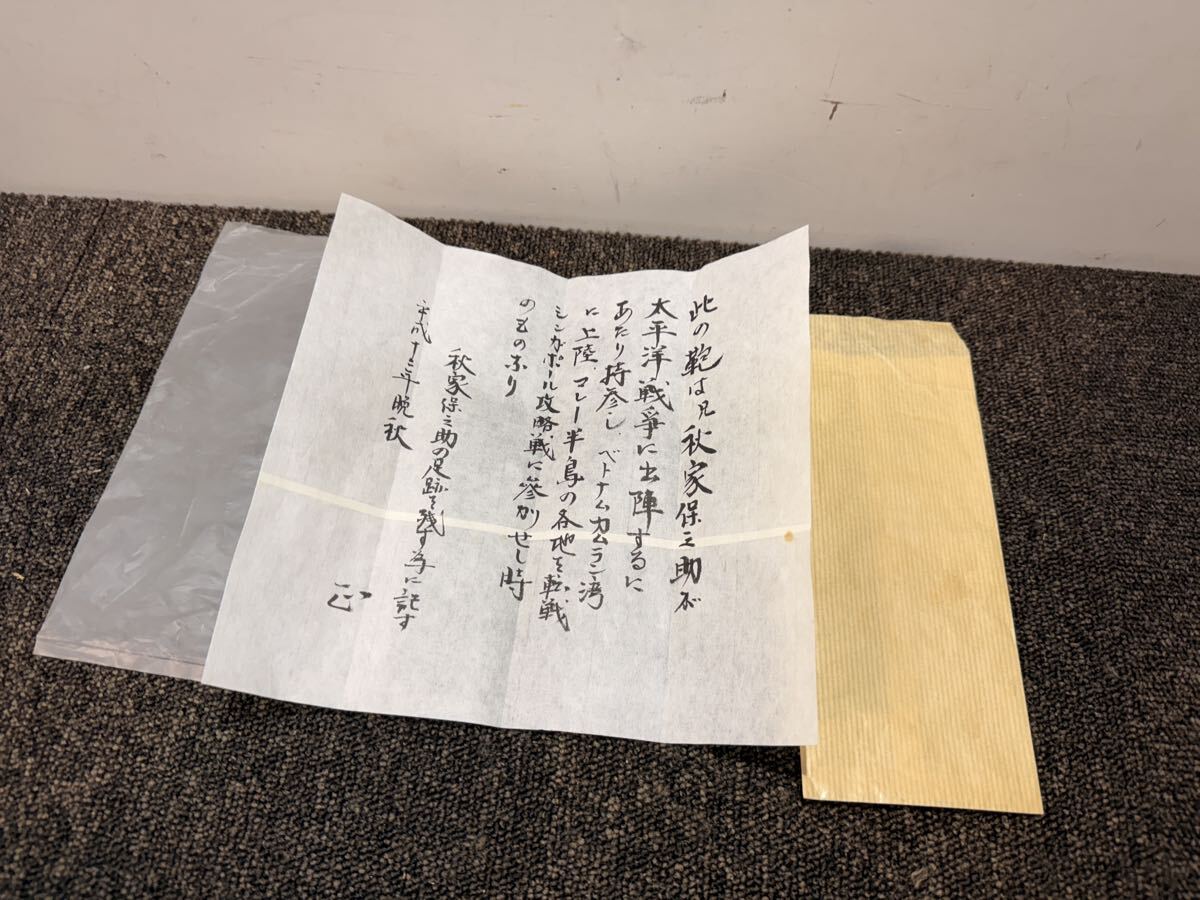 此の鞄は兄秋家保之助が
太平洋戦争に出陣するに
あたり持参し、ベトナムカムラン湾
に上陸、マレー半島の各地を転戦
シンガポール攻略戦に参加せし時
のものなり
秋家保之助の足跡を残す為に記す
平成十三年晩秋
正